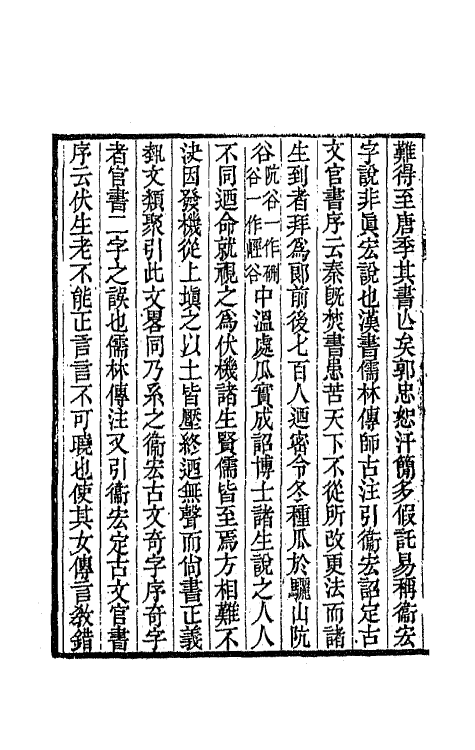 難得至唐季其書亾矣郭忠恕汗簡多假託易稱衞宏
字說非眞宏說也漢書儒林傳師古注引衞宏詔定古
文官書序云秦旣焚書患苦天下不從所改更法而諸
生到者拜爲郞前後七百人迺密令冬種瓜於驪山阬
谷阬谷一作硎谷一作䃘谷中溫處瓜實成詔博士諸生說之人人
不同迺命就視之爲伏機諸生賢儒皆至焉方相難不
決因發機從上塡之以土皆壓終迺無聲而尙書正義
埶文類聚引此文畧同乃系之衞宏古文奇字序奇字
者官書二字之誤也儒林傳注又引衞宏定古文官書
序云伏生老不能正言言不可曉也使其女傳言敎錯